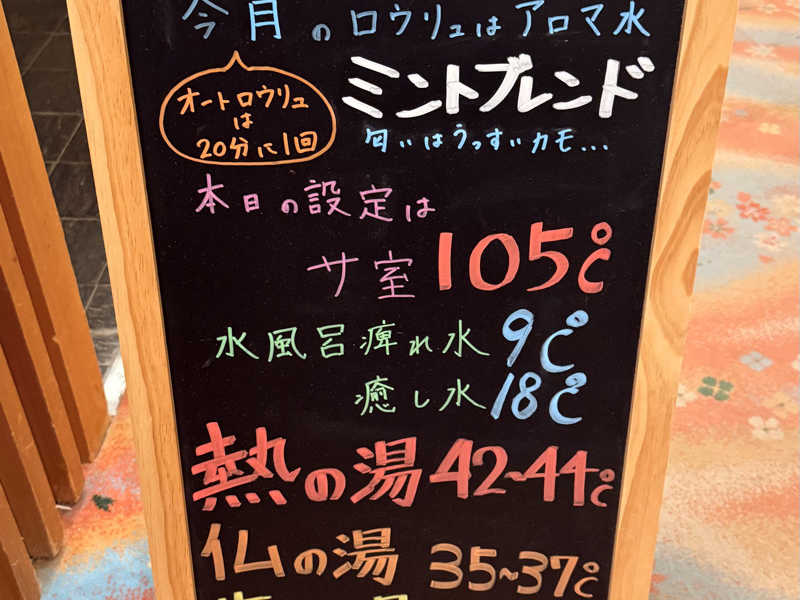 今月のロウリュはアロマ水
オートロウリュ
は
20分に1回
ミントブレンド
匂いはうっすいカモ...
本日の設定は
サ室 105℃
水風呂痺れ水 9℃
癒し水 18℃
熱の湯 42~44℃
仏の湯 35~37℃